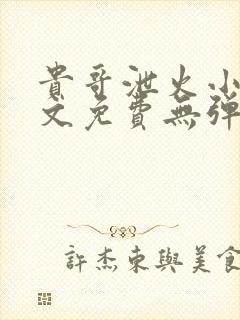 貴哥泄火小
文免費無彈
許杰東與美食